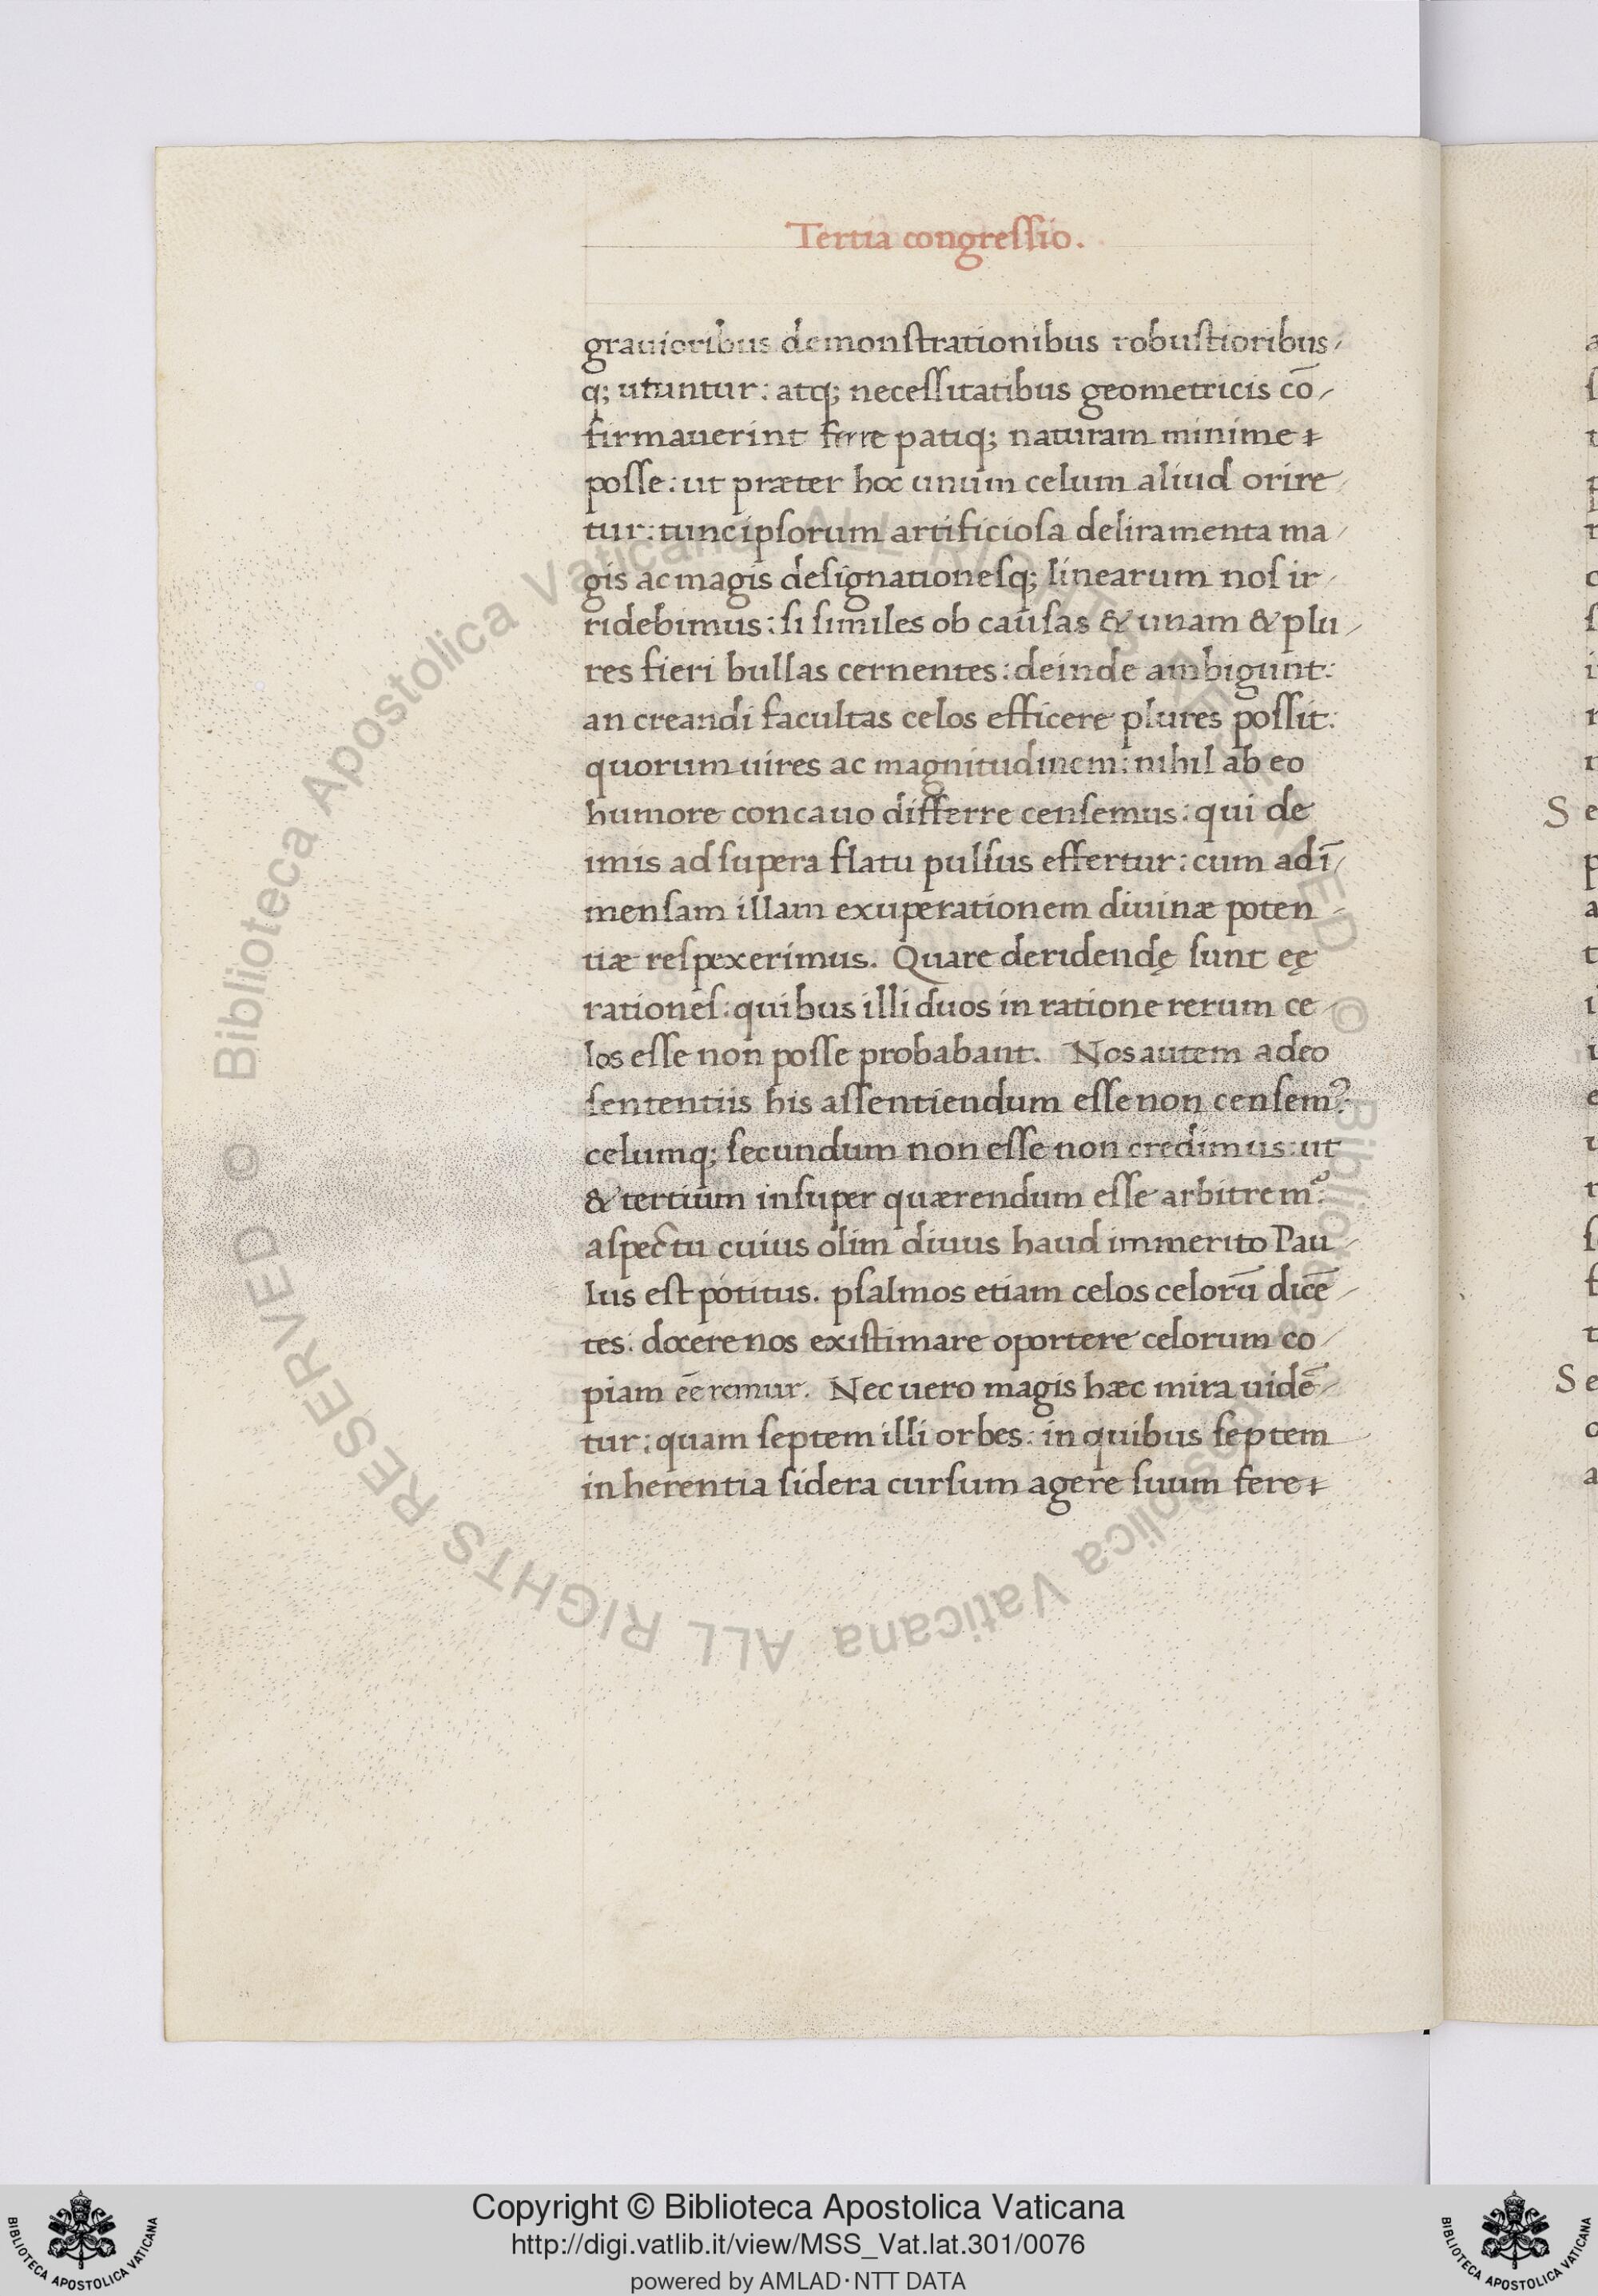 Tertia congressio.
grauioribus demonstrationibus robustioribus/
q; utuntur: atq; necessitatibus geometricis cō/
firmauerint ferre patiq; naturam minime
posse: ut præter hoc unum celum aliud orire/
tur: tunc ipsorum artificiosa deliramenta ma/
gis ac magis designationesq; linearum nos ir/
ridebimus: si similes ob causas & unam & plu/
res fieri bullas cernentes: deinde ambigunt:
an creandi facultas celos efficere plures possit:
quorum uires ac magnitudinem: nihil ab eo
humore concauo differre censemus: qui de
imis ad supera flatu pulsus effertur: cum ad ī/
mensam illam exuperationem diuinæ poten/
tiæ respexerimus. Quare deridendę sunt eę
rationes: quibus illi duos in ratione rerum ce/
los esse non posse probabant. Nos autem adeo
sententiis his assentiendum esse non censemꝰ:
celumq; secundum non esse non credimus: ut
& tertium insuper quærendum esse arbitremꝰ:
aspectu cuius olim diuus haud immerito Pau/
lus est potitus. psalmos etiam celos celorū dicē/
tes: docere nos existimare oportere celorum co/
piam eē remur. Nec uero magis hæc mira uidē/
tur: quam septem illi orbes: in quibus septem
inherentia sidera cursum agere suum fere
S e
S e
© Biblioteca Apostolica Vaticana ALL RIGHTS RESERVED © Biblioteca Apostolica Vaticana ALL RIGHTS RESERVED
Copyright © Biblioteca Apostolica Vaticana
http://digi.vatlib.it/view/MSS_Vat.lat.301/0076
powered by AMLAD·NTT DATA
BIBLIOTECA APOSTOLICA VATICANA
BIBLIOTECA APOSTOLICA VATICANA